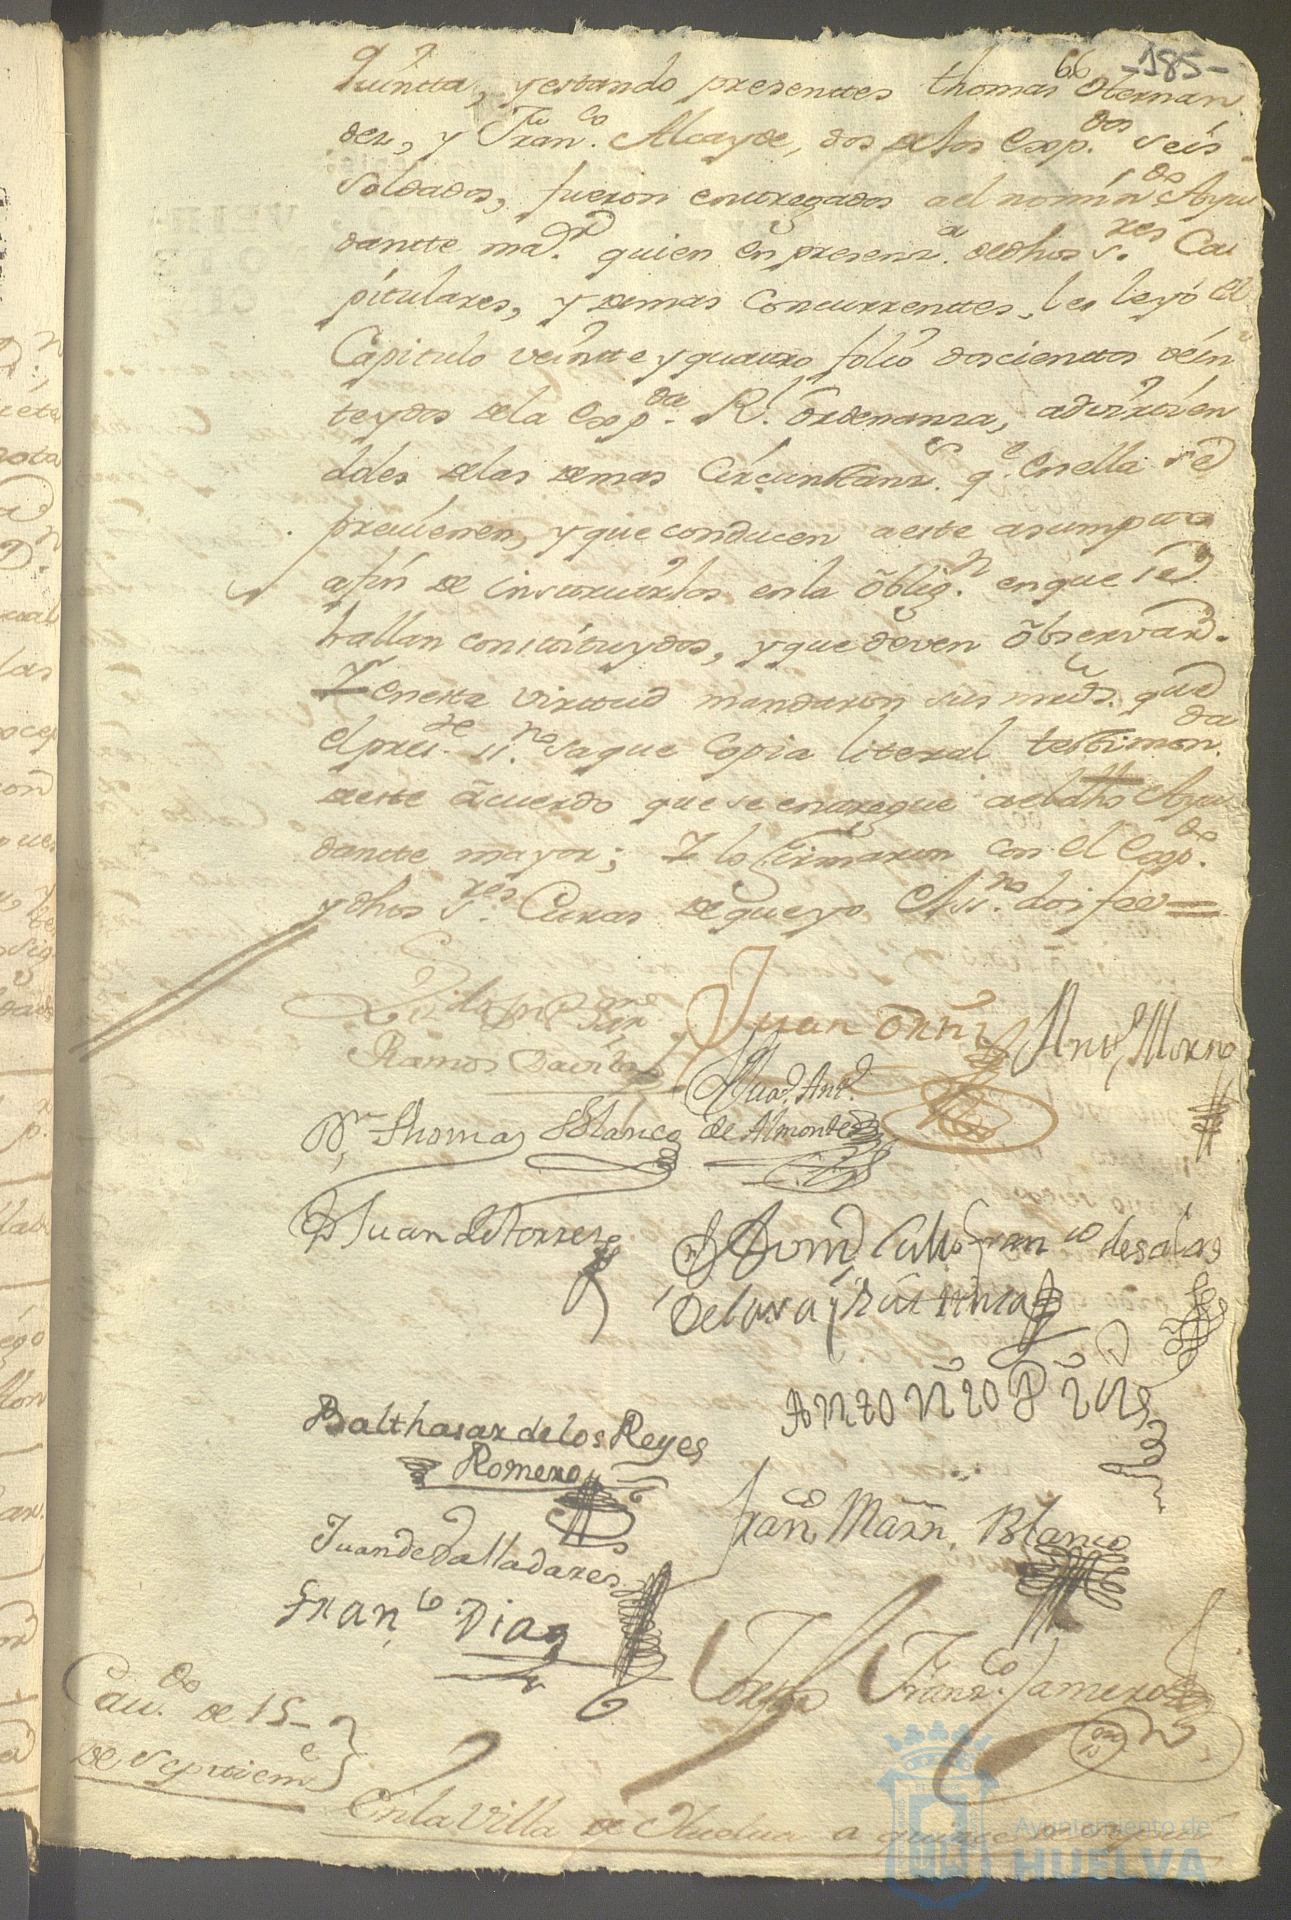 66 -185-
Quintta, y estando presenttes thomas Hernan
dez, y Fran.co Alcayde, dos de los Exp.dos seis
soldados, fueron entregados a el nomin.do Ayu
dantte ma.r quien en presenz.a de dhos s.res Ca
pitulares, y demas Concurrenttes, les leyó el
Capitulo veintte y quatro folio doscientos vein
te y dos de la Exp.da R.l ordenanza, advirtien
doles de las demas Circunstanz.s q.e en ella se
previenen, y que conducen a este asumpto
a fin de instruirlos en la oblig.n en que se
hallan constituydos, y que deven observar.
Y en esta virtud mandaron sus mrds. que
el pres.te ss.no saque Copia literal testimon.da
de este acuerdo que se entregue a el dho Ayu
dantte mayor; Y lo firmaron con el Exp.do
y dhos s.res Curas de que yo el ss.no doi fee =
Ramos
Juan
Ant.o Moreno
D.n Thomas Blanco
Ant.o
de Almonte
D Juan de Torres
Dom.o
Fran.co de salas
de Lara y
Antonio
Balthasar de los Reyes
Romero
Fran.co Marn. Blanco
Juan de Valladares
Fran.co Diaz
Joseph Franz.co Jamero
Cav.do de 15
de Septiem.e
En la Villa de Huelva a quince
Ayuntamiento de
HUELVA